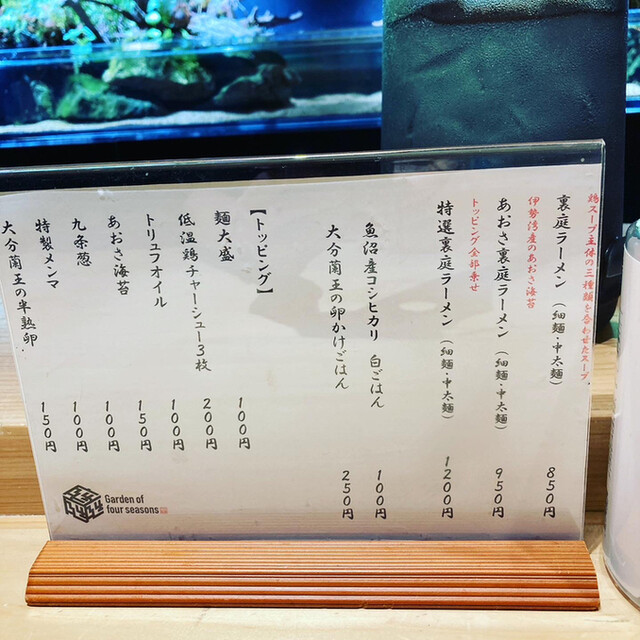 鶏スープ主体の三種類を合わせたスープ
裏庭ラーメン（細麺・中太麺）850円
伊勢湾産のあおさ海苔
あおさ裏庭ラーメン（細麺・中太麺）950円
トッピング全部乗せ
特選裏庭ラーメン（細麺・中太麺）1200円
魚沼産コシヒカリ 白ごはん 100円
大分蘭王の卵かけごはん 250円
【トッピング】
麺大盛 100円
低温鶏チャーシュー3枚 200円
トリュフオイル 100円
あおさ海苔 150円
九条葱 100円
特製メンマ 100円
大分蘭王の半熟卵 150円
Garden of
four seasons